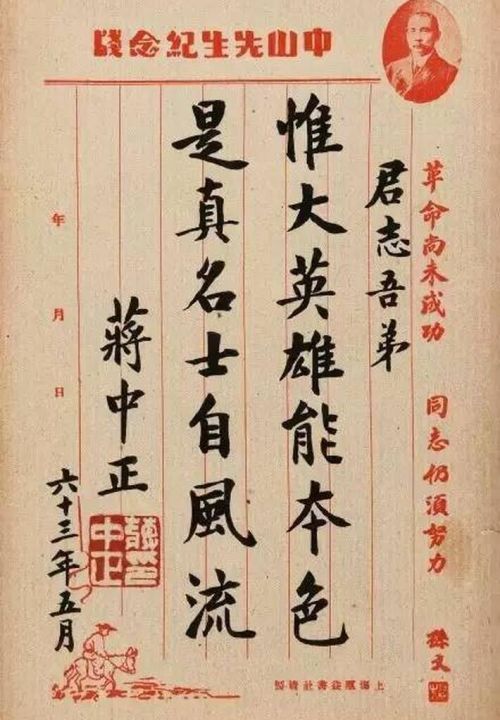 中山先生紀念牋
革命尚未成功　同志仍須努力
孫文
君志吾弟
惟大英雄能本色
是真名士自風流
蔣中正
蔣印中正
年　月　日
六十三年五月